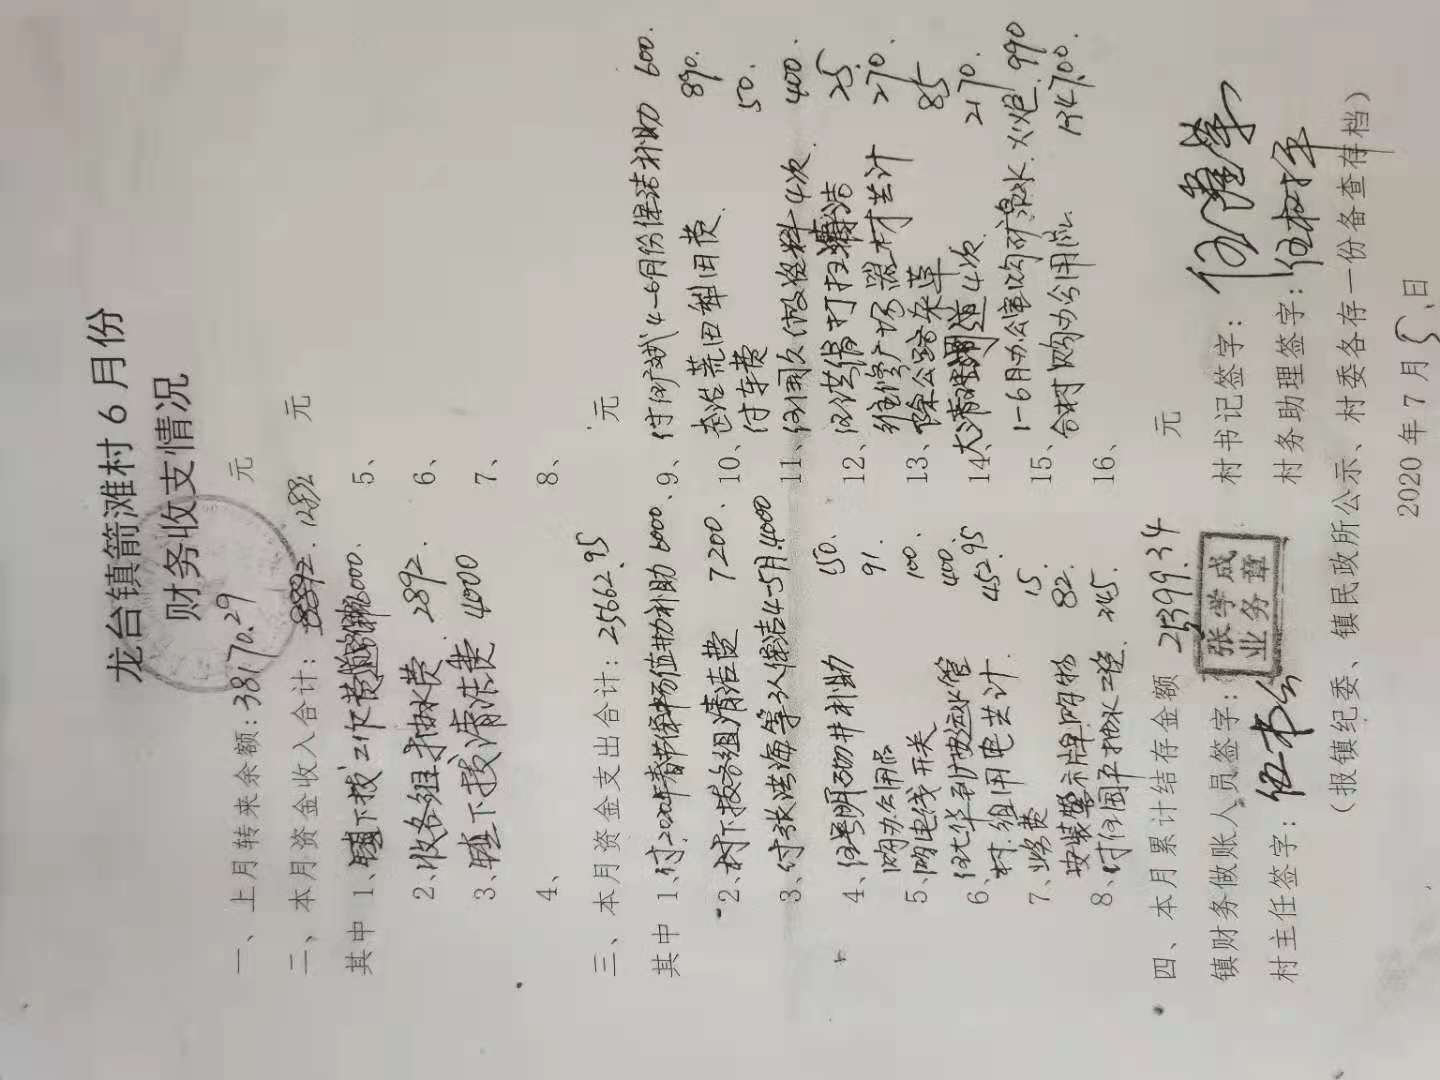 龙台镇箭滩村6月份
财务收支情况
一、上月转来余额:38170.29 元
二、本月资金收入合计: 12892 元
其中 1、镇下拨工作 6000. 5、
2、收各组抽水费. 2892. 6、
3、镇下拨清洁费 4000 7、
4、 8、
三、本月资金支出合计:25662.95 元
其中 1、付2020年春节 值班补助 6000、 9、付 4-6月份保洁补助 600.
2、村下拨各组清洁费 7200. 10、整治荒田犁田费. 890.
付车费 50.
3、付张洪海等3人保洁4-5月.4000 11、 资料4次. 400.
4、 补助 150. 12、 打扫清洁 25.
购办公用品 91. 维修广场器材共计 270.
5、购电线开关 100. 13、除公路杂草 85
水管 400. 大清 4次. 2170.
6、村.组用电共计. 452.95 14、
7、 费 15. 15、1-6月办公室购矿泉水.火炮. 990
安装警示牌购物 82. 合村购办公用品 1347.00.
8、付 抽水工资. 245. 16、
四、本月累计结存金额 25399.34 元
镇财务做账人员签字: 张学成业务章 村书记签字:
村主任签字: 村务助理签字:
（报镇纪委、镇民政所公示、村委各存一份备查存档）
2020年7月5日